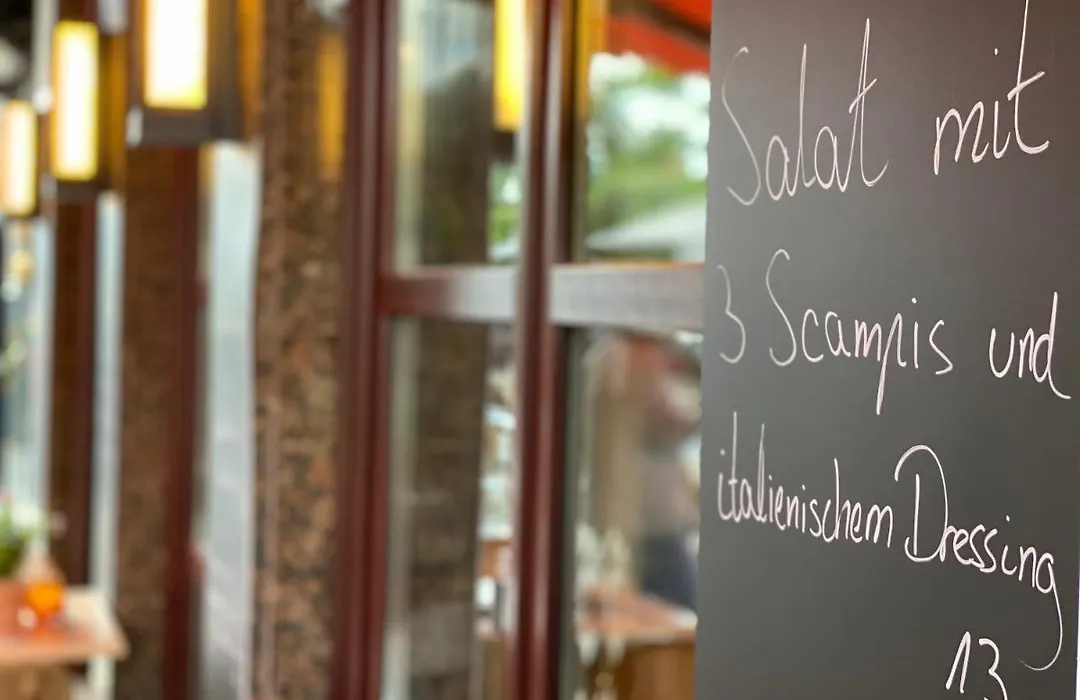 Salat mit
3 Scampis und
italienischem Dressing
13